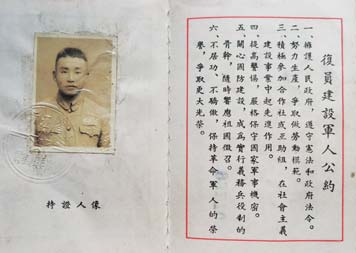 復員建設軍人公約
一、擁護人民政府，遵守憲法和政府法令。
二、努力生產，爭取做勞動模范。
三、積極參加合作社或互助組，在社會主義
建設事業中起先進作用。
四、提高警惕，嚴格保守國家軍事機密。
五、關心國防建設，成爲實行義務兵役制的
骨幹，隨時響應祖國徵召。
六、不居功、不驕傲，保持革命軍人的榮
譽，爭取更大光榮。
持證人像